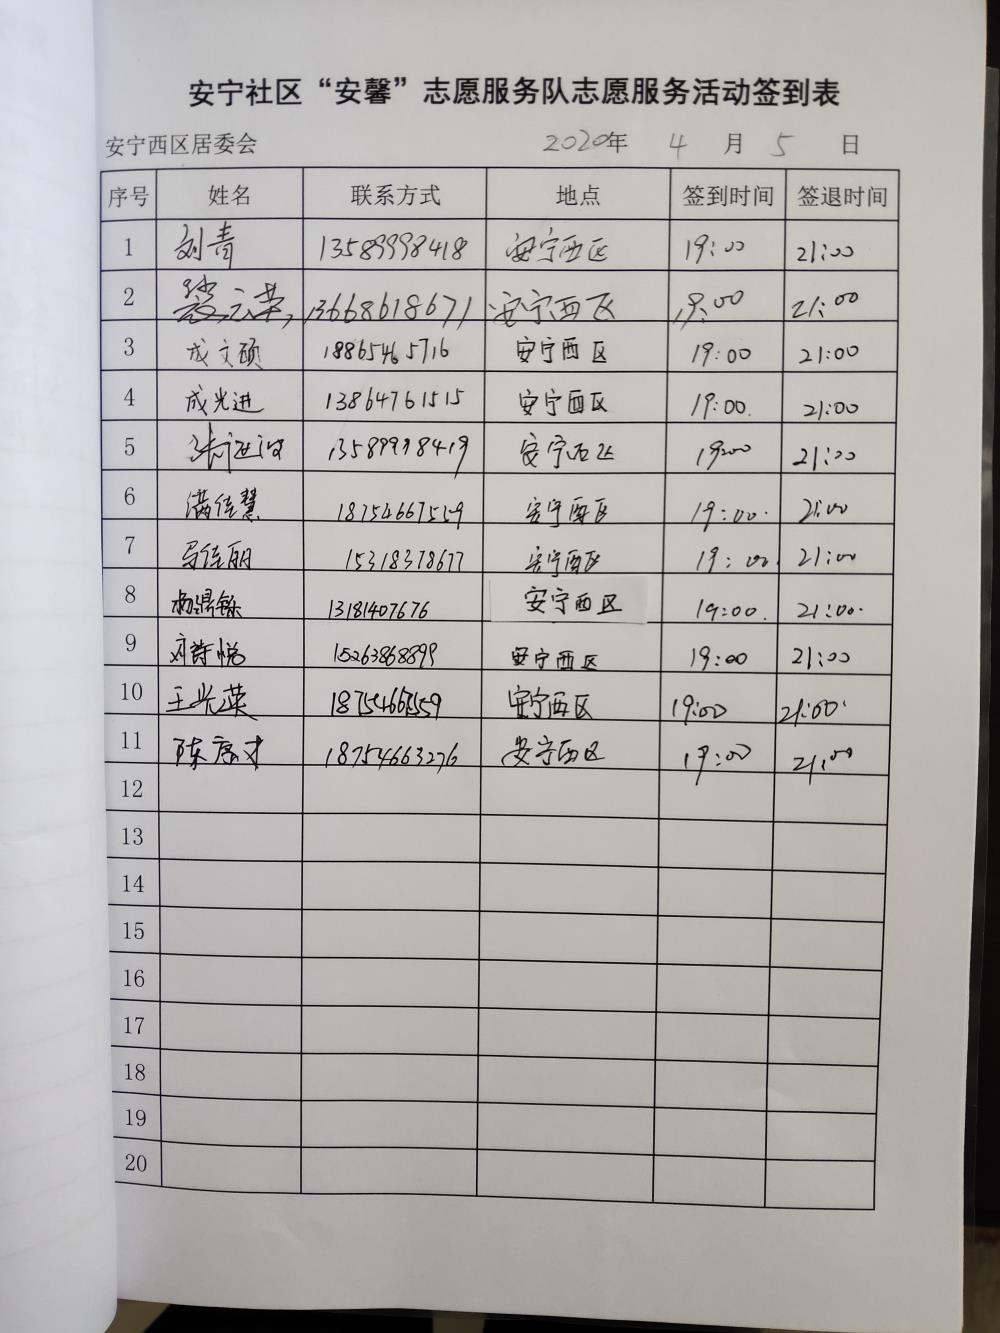 安宁社区“安馨”志愿服务队志愿服务活动签到表
安宁西区居委会 2020年 4 月 5 日
序号 姓名 联系方式 地点 签到时间 签退时间
1 刘青 13589998418 安宁西区 19:00 21:00
2 13668618671 安宁西区 19:00 21:00
3 成文硕 18865465716 安宁西区 19:00 21:00
4 成光进 13864761515 安宁西区 19:00. 21:00
5 13589998419 安宁西区 19:00 21:00
6 满佳慧 18754667559 安宁西区 19:00. 21:00
7 马佳丽 15318378677 安宁西区 19:00. 21:00
8 杨鼎铄 13181407676 安宁西区 19:00. 21:00.
9 刘诗悦 15263868899 安宁西区 19:00 21:00
10 王兴英 18754667559 安宁西区 19:00 21:00.
11 18754663276 安宁西区 19:00 21:00
12
13
14
15
16
17
18
19
20